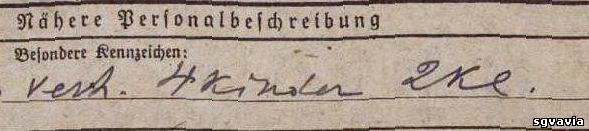 Nähere Personalbeschreibung
Besondere Kennzeichen:
verh. 4 Kinder 2Kl.
sgvavia